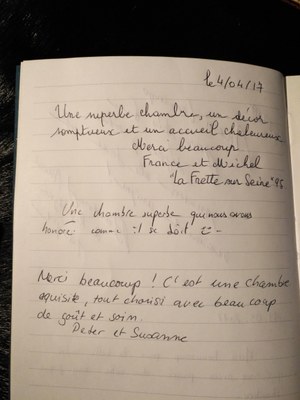 le 4/04/17
Une superbe chambre, un décor
somptueux et un accueil chaleureux
Merci beaucoup
France et Michel
"La Frette sur Seine" 95
Une chambre superbe que nous avons
honorée comme il se doit
Merci beaucoup ! C'est une chambre
equisite, tout choisi avec beaucoup
de goût et soin.
Peter et Susanne